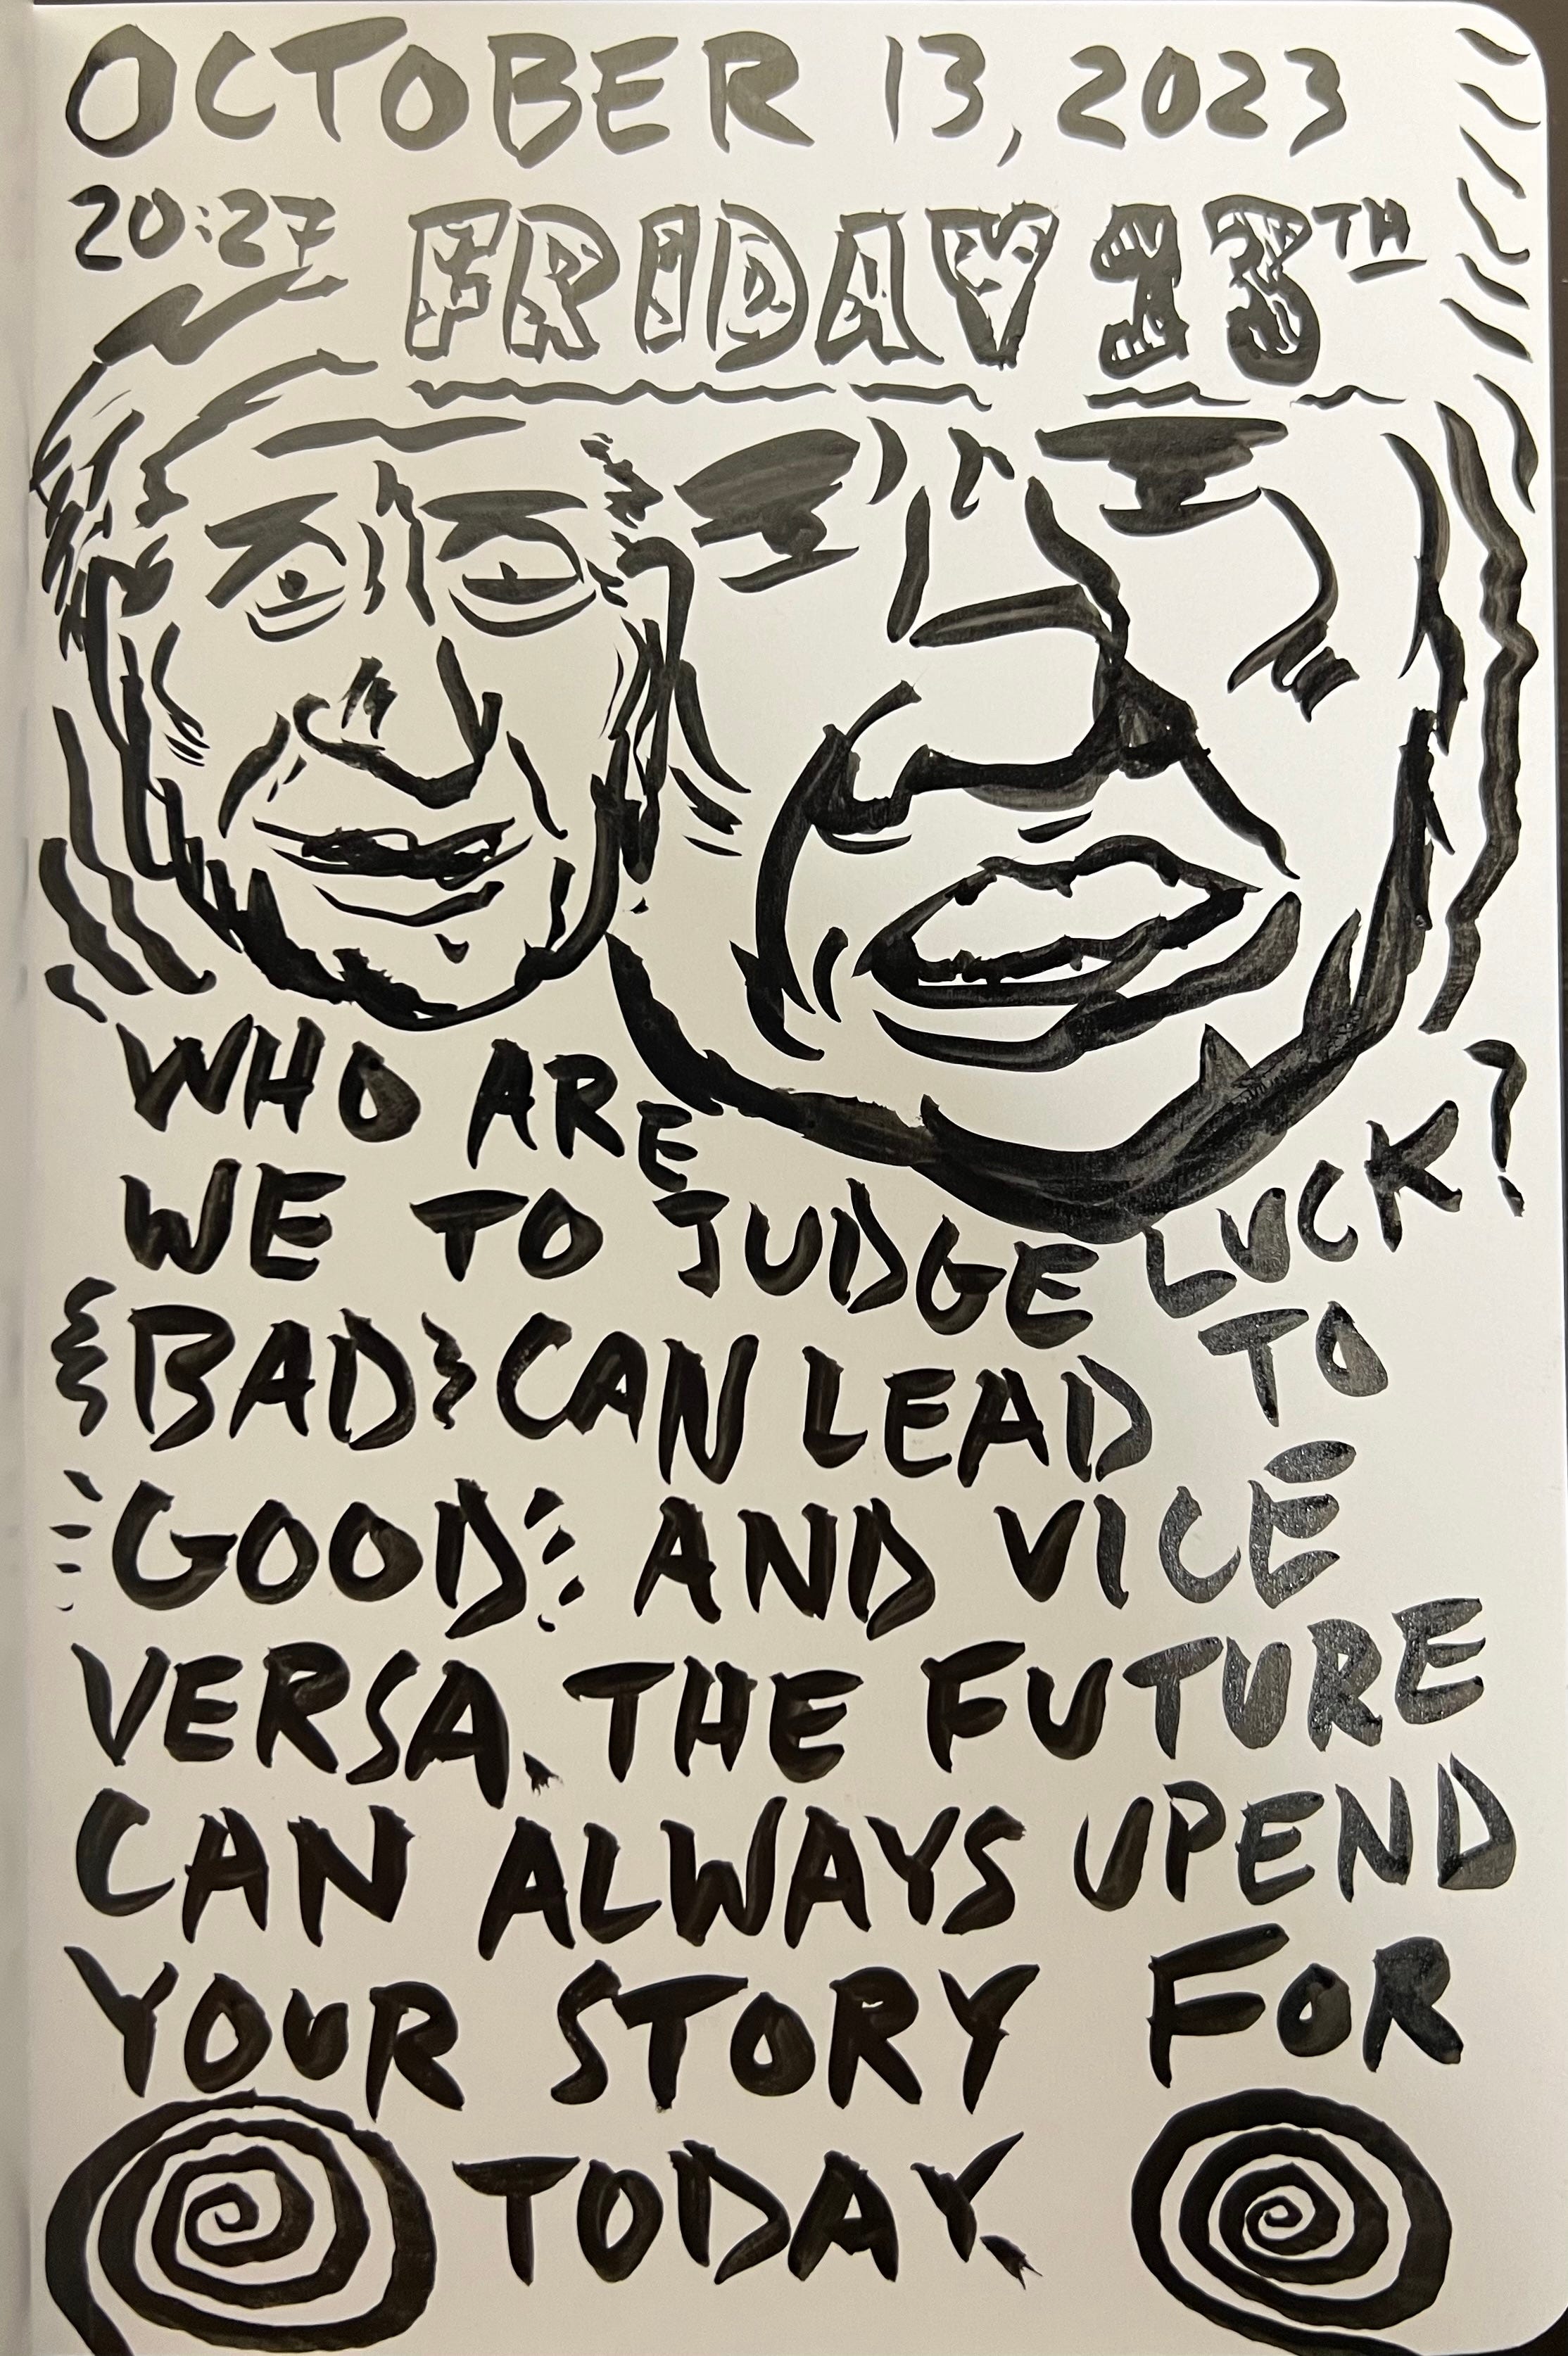 OCTOBER 13, 2023
20:27 FRIDAY 13TH
WHO ARE
WE TO JUDGE LUCK?
BAD CAN LEAD TO
GOOD AND VICE
VERSA. THE FUTURE
CAN ALWAYS UPEND
YOUR STORY FOR
TODAY.